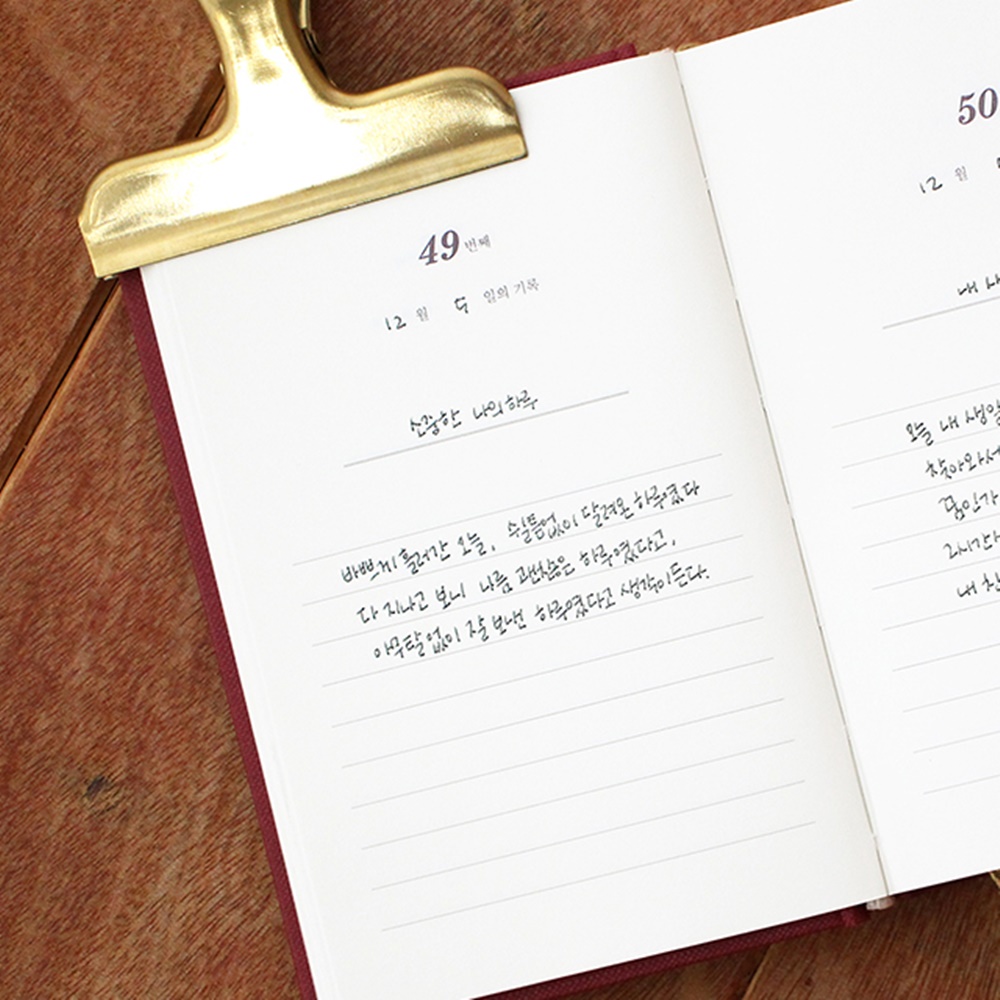 49 번째
12 월 5 일의 기록
소중한 나의 하루
바쁘게 흘러간 오늘, 쉴틈없이 달려온 하루였다
다 지나고 보니 나름 괜찮은 하루였다고,
아무탈없이 잘 보낸 하루였다고 생각이든다.
50
12 월
내 생
오늘 내 생일
찾아와서
2시간
내 친